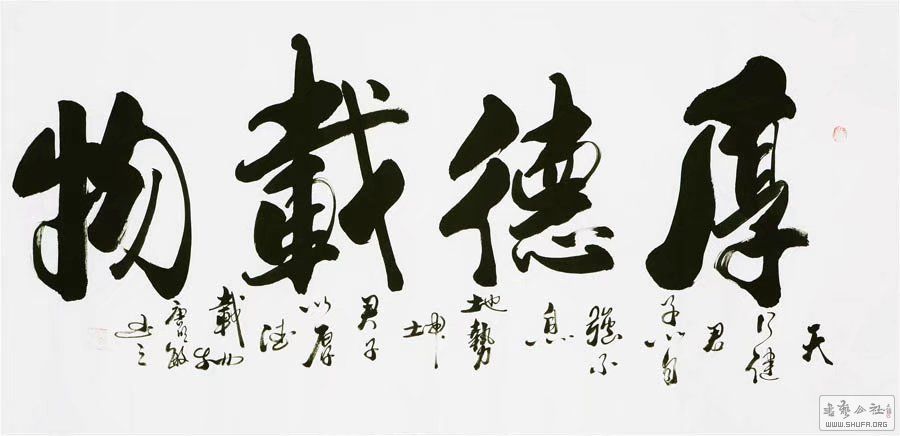 厚德載物
天
行健
君
子以自
強不
息
地勢
坤
君子
以厚
德
載物
唐明敏
書之
書藝公社
WWW.SHUFA.ORG